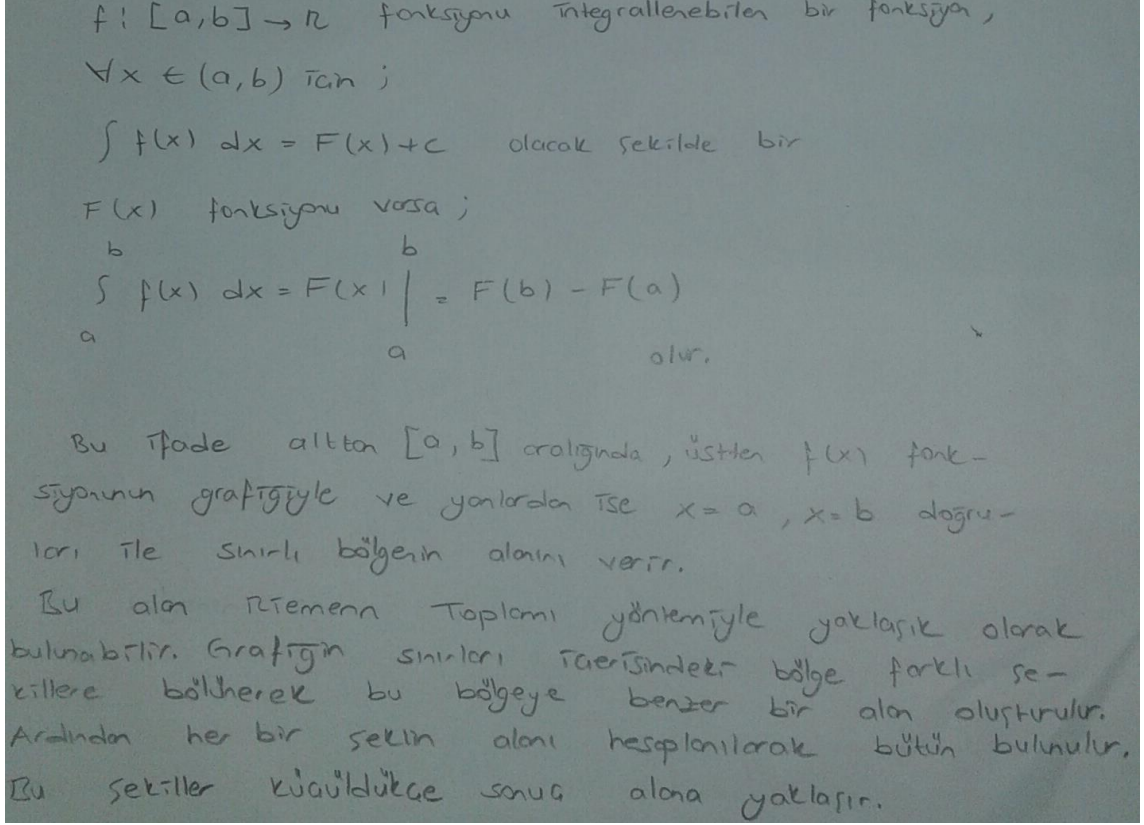 f : [a,b] → R fonksiyonu integrallenebilen bir fonksiyon,
∀x ∈ (a,b) için ;
∫ f(x) dx = F(x)+c olacak şekilde bir
F(x) fonksiyonu varsa ;
b b
∫ f(x) dx = F(x) | = F(b) - F(a)
a a olur.
Bu ifade alttan [a,b] aralığında, üstten f(x) fonk-
siyonunun grafiğiyle ve yanlardan ise x=a, x=b doğru-
ları ile sınırlı bölgenin alanını verir.
Bu alan Riemenn Toplamı yöntemiyle yaklaşık olarak
bulunabilir. Grafiğin sınırları içerisindeki bölge farklı şe-
killere bölünerek bu bölgeye benzer bir alan oluşturulur.
Ardından her bir şekin alanı hesaplanılarak bütün bulunulur.
Bu şekiller küçüldükçe sonuç alana yaklaşır.